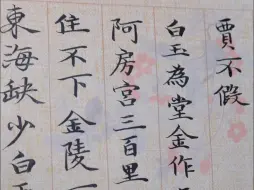 賈不假
白玉為堂金作
阿房宮三百里
住不下金陵一
東海缺少白玉